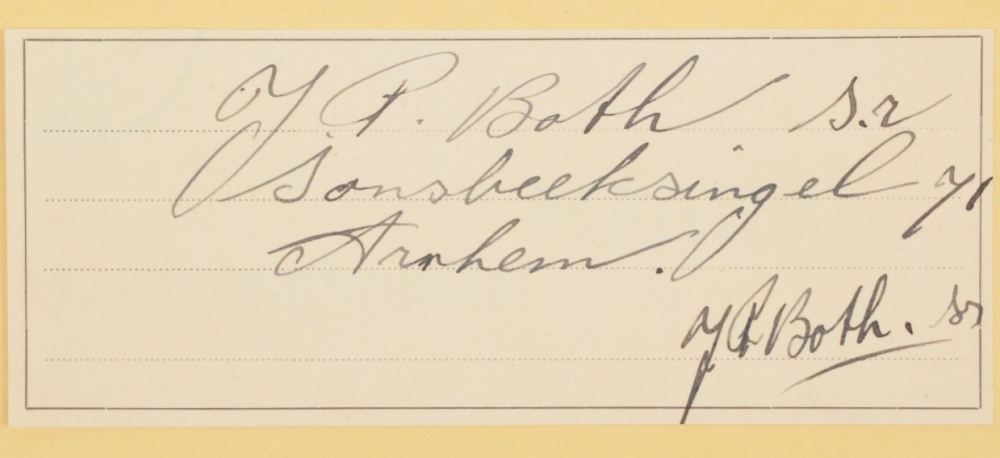 J. P. Both Sr
Sonsbeeksingel 71
Arnhem.
J P Both. Sr